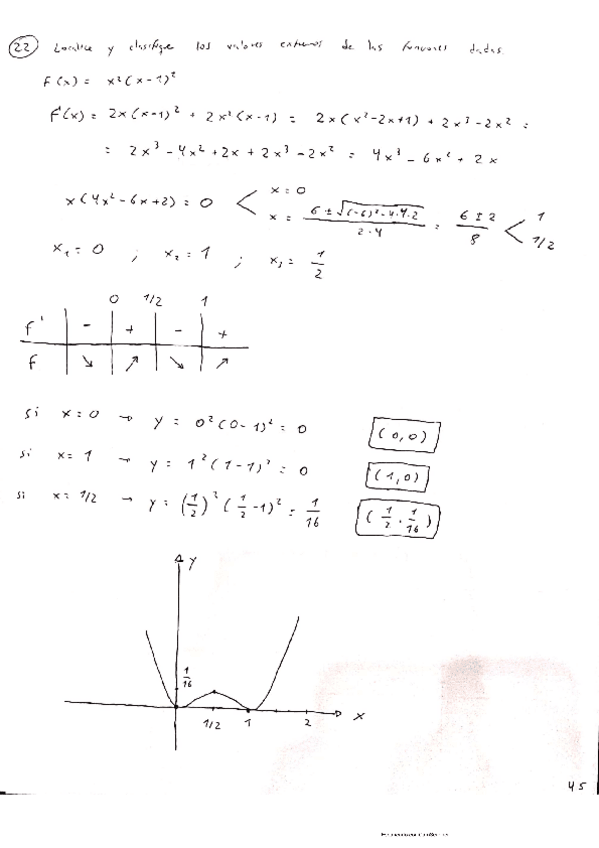 22 Localice y clasifique los valores extremos de las funciones dadas.
F(x) = x²(x-1)²
F'(x) = 2x(x-1)² + 2x²(x-1) = 2x(x²-2x+1) + 2x³-2x² =
= 2x³ - 4x² + 2x + 2x³ - 2x² = 4x³ - 6x² + 2x
x(4x²-6x+2) = 0 < x = 0
x = (6 ± √((-6)²-4·4·2))/(2·4) = (6 ± 2)/8 < 1
1/2
x₁ = 0 ; x₂ = 1 ; x₃ = 1/2
0 1/2 1
f' - + - +
f ↘ ↗ ↘ ↗
si x = 0 → y = 0²(0-1)² = 0 (0,0)
si x = 1 → y = 1²(1-1)² = 0 (1,0)
si x = 1/2 → y = (1/2)²(1/2-1)² = 1/16 (1/2, 1/16)
y
1/16
1/2 1 2 x
45